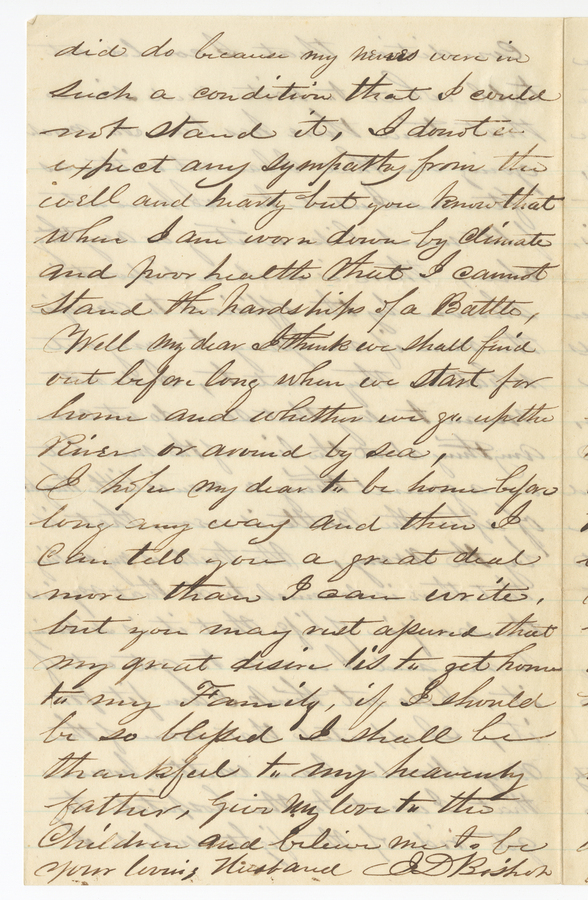 did do because my nerves were in
such a condition that I could
not stand it, I do not
expect any sympathy from the
well and hearty but you know that
when I am worn down by climate
and poor health that I cannot
stand the hardships of a Battle,
Well my dear I think we shall find
out before long when we start for
home and whether we go up the
River or around by sea,
I hope my dear to be home before
long any way and then I
Can tell you a great deal
more than I can write,
but you may rest assured that
my great desire is to get home
to my Family, if I should
be so blessed I shall be
thankful to my heavenly
father, Give my love to the
Children and believe me to be
your loving Husband J D Bishop